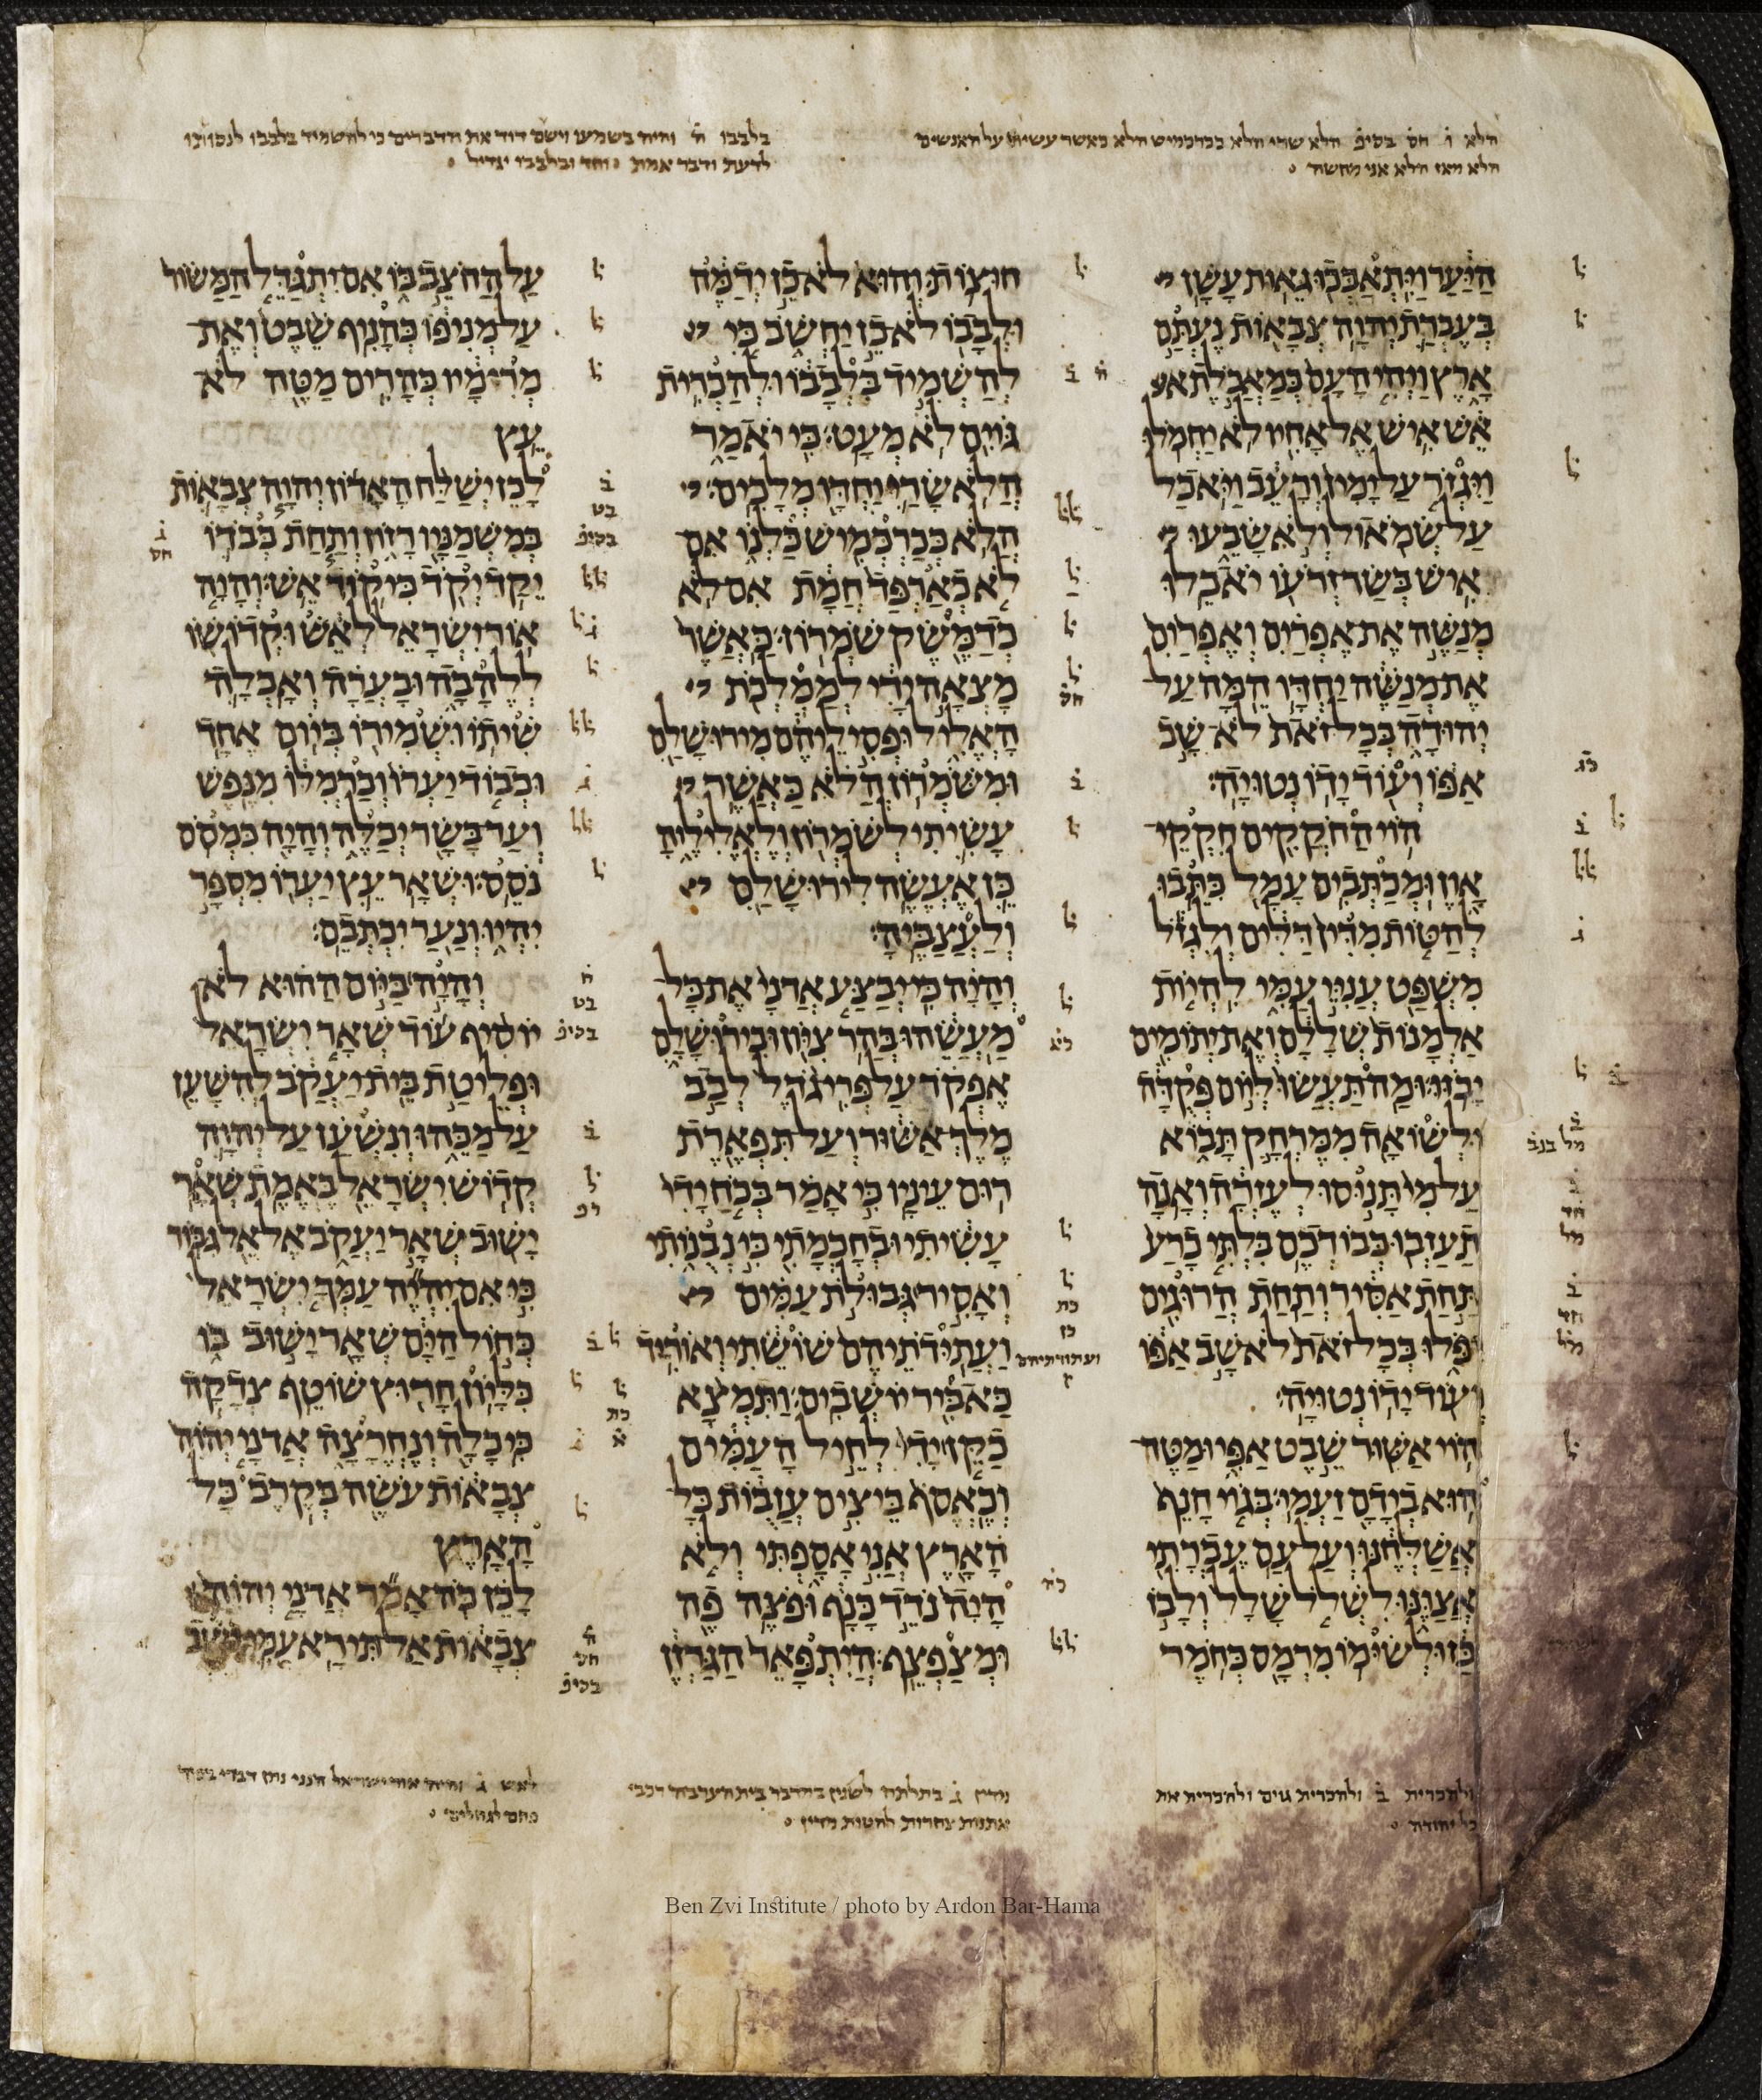 הלא ו חס בסיפ הלא שרי הלא ככרכמיש הלא כאשר עשיתי על האנשים
הלא מאז הלא אני מחשה
בלבבו ח והיה בשמעו וישם דוד את הדברים כי להשמיד בלבבו לנסותו
לדעת ודבר אמת וחד ובלבבו יגדיל
היער ויתאבכו גאות עשן
בעברת יהוה צבאות נעתם
ארץ ויהי העם כמאכלת
אש איש אל אחיו לא יחמלו
ויגזר על ימין ורעב ויאכל
על שמאול ולא שבעו
איש בשר זרעו יאכלו
מנשה את אפרים ואפרים
את מנשה יחדו המה על
יהודה בכל זאת לא שב
אפו ועוד ידו נטויה׃
הוי החקקים חקקי
און ומכתבים עמל כתבו
להטות מדין דלים ולגזל
משפט עניי עמי להיות
אלמנות שללם ואת יתומים
יבזו׃ ומה תעשו ליום פקדה
ולשואה ממרחק תבוא
על מי תנוסו לעזרה ואנה
תעזבו כבודכם בלתי כרע
תחת אסיר ותחת הרוגים
יפלו בכל זאת לא שב אפו
ועוד ידו נטויה׃
הוי אשור שבט אפי ומטה
הוא בידם זעמי׃ בגוי חנף
אשלחנו ועל עם עברתי
אצונו לשלל שלל ולבז
בז ולשומו מרמס כחמר
חוצות׃ והוא לא כן ידמה
ולבבו לא כן יחשב כי
להשמיד בלבבו ולהכרית
גוים לא מעט׃ כי יאמר
הלא שרי יחדו מלכים׃
הלא ככרכמיש כלנו אם
לא כארפד חמת אם לא
כדמשק שמרון׃ כאשר
מצאה ידי לממלכת
האליל ופסיליהם מירושלם
ומשמרון׃ הלא כאשר
עשיתי לשמרון ולאליליה
כן אעשה לירושלם
ולעצביה׃
והיה כי יבצע אדני את כל
מעשהו בהר ציון ובירושלם
אפקד על פרי גדל לבב
מלך אשור ועל תפארת
רום עיניו׃ כי אמר בכח ידי
עשיתי ובחכמתי כי נבנותי
ואסיר גבולת עמים
ועתידתיהם שושתי ואוריד
כאביר יושבים׃ ותמצא
כקן ידי לחיל העמים
וכאסף ביצים עזבות כל
הארץ אני אספתי ולא
היה נדד כנף ופצה פה
ומצפצף׃ היתפאר הגרזן
על החצב בו אם יתגדל המשור
על מניפו כהניף שבט ואת
מרימיו כהרים מטה לא
עץ
לכן ישלח האדון יהוה צבאות
במשמניו רזון ותחת כבדו
יקד יקד כיקוד אש׃ והיה
אור ישראל לאש וקדושו
ללהבה ובערה ואכלה
שיתו ושמירו ביום אחד
וכבוד יערו וכרמלו מנפש
ועד בשר יכלה והיה כמסס
נסס׃ ושאר עץ יערו מספר
יהיו ונער יכתבם׃
והיה ביום ההוא לא
יוסיף עוד שאר ישראל
ופליטת בית יעקב להשען
על מכהו ונשען על יהוה
קדוש ישראל באמת׃ שאר
ישוב שאר יעקב אל אל גבור
כי אם יהיה עמך ישראל
כחול הים שאר ישוב בו
כליון חרוץ שוטף צדקה
כי כלה ונחרצה אדני יהוה
צבאות עשה בקרב כל
הארץ
לכן כה אמר אדני יהוה
צבאות אל תירא עמי ישב
ולהכרית ב ולהכרית גוים ולהכרית את
כל יהודה
מדין ג בתלתה לשנין במדבר בית הערבה רכבי
אתנות צחרות להטות מדין
לאש ג והיה אור ישראל הנני נתן דברי בפיך
Ben Zvi Institute / photo by Ardon Bar-Hama